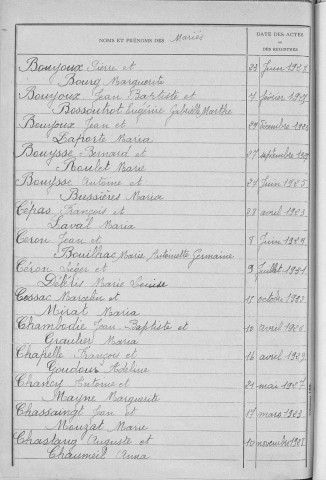 NOMS ET PRÉNOMS DES Mariés
DATE DES ACTES
OU
DES REGISTRES
Boujoux Pierre et 23 Juin 1908
Bourg Marguerite
Boujoux Jean Baptiste et 7 février 1907
Bossoutrot Eugénie Gabrielle Marthe
Boujoux Jean et 29 décembre
Laporte Maria
Bouysse Bernard et 27 septembre
Roulet Marie
Bouysse Antoine et 27 Juin 1905
Bussières Maria
Cépas François et 28 avril 1903
Laval Maria
Céron Jean et 8 Juin
Bouilhac Maria Antoinette Germaine
Céron Léger et 9 Juillet
Déléris Marie Louise
Cessac Marcelin et 17 octobre
Mirat Maria
Chambodie Jean-Baptiste et 10 avril
Graulier Maria
Chapelle François et 16 avril 1909
Goudour Adeline
Chancy Antoine et 21 mai 1907
Mayne Marguerite
Chassaingt Jean et 17 mars 1903
Mouzat Marie
Chastang Auguste et 10 novembre 1908
Chaumeil Anna